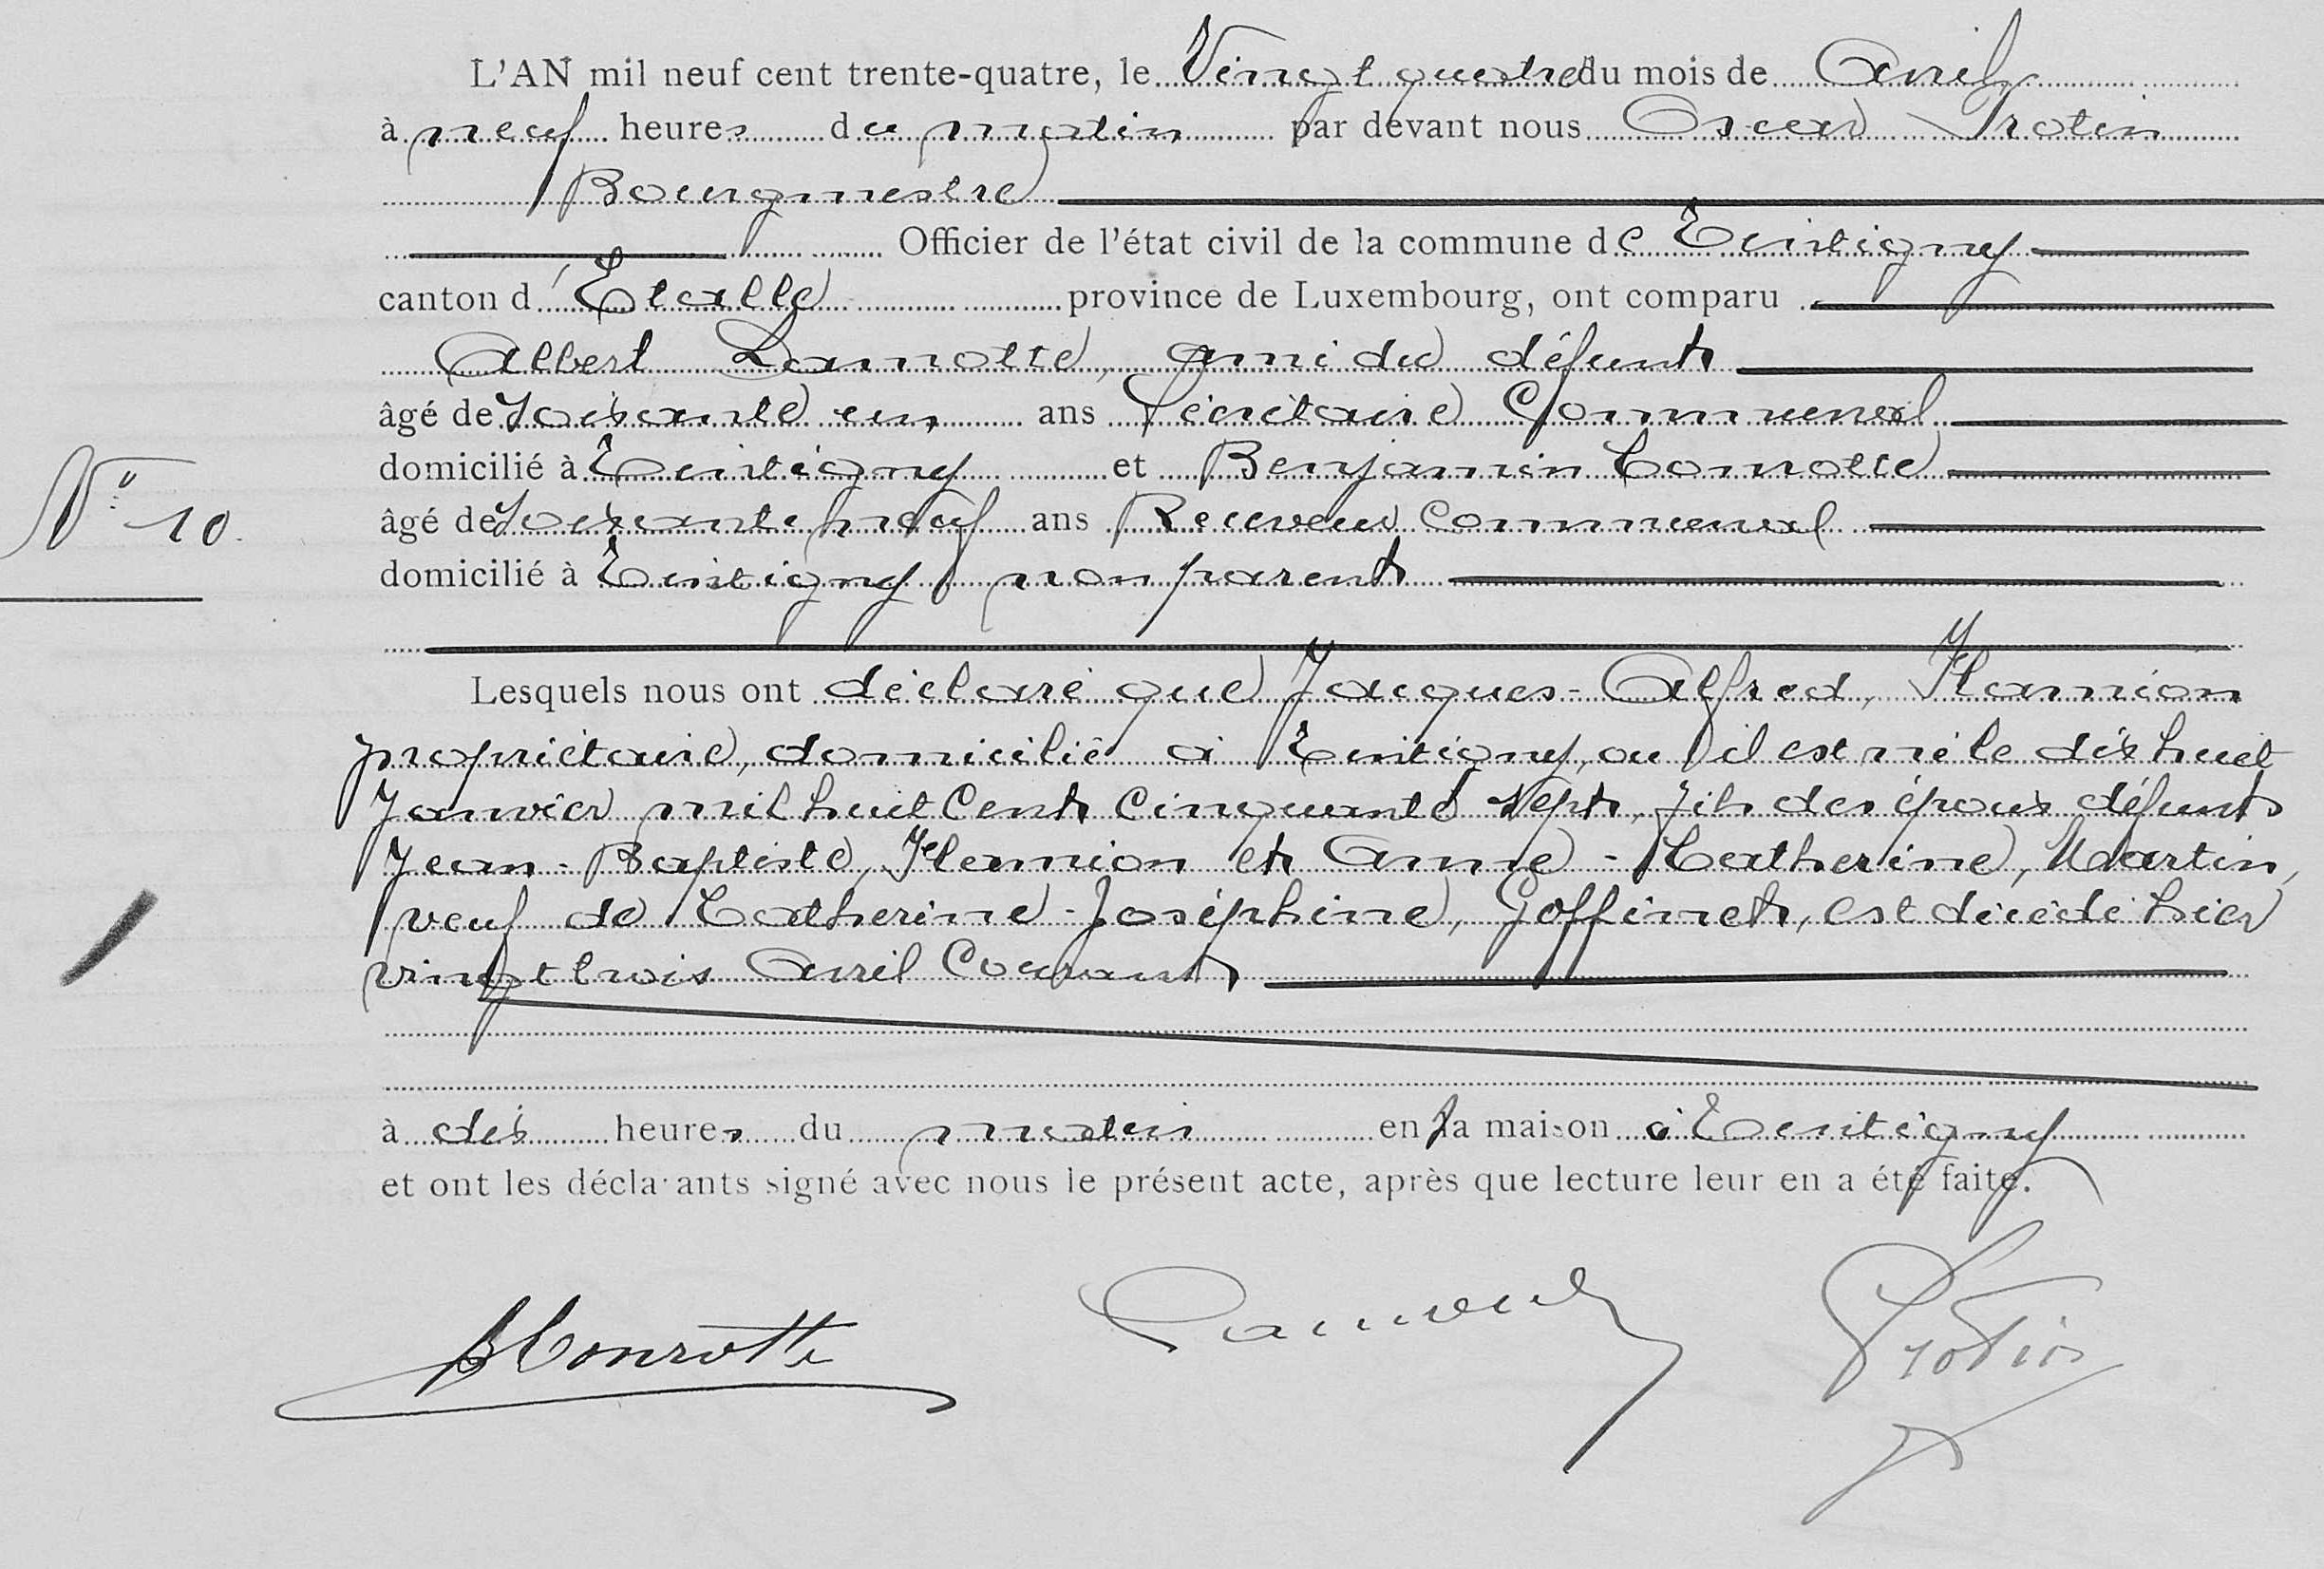 L'AN mil neuf cent trente-quatre, le Vingt quatre du mois de Avril
à neuf heures du matin par devant nous Oscar Protin
Bourgmestre
Officier de l'état civil de la commune de Tintigny
canton d'Etalle province de Luxembourg, ont comparu
Albert Lamotte, ami du défunt
âgé de soixante un ans Sécrétaire Communal
domicilié à Tintigny et Benjamin Conrotte
N° 10.
âgé de soixante neuf ans Receveur Communal
domicilié à Tintigny non parent
Lesquels nous ont déclaré que Jacques-Alfred, Hamion
propriétaire, domicilié à Tintigny, ou il est né le dix huit
Janvier mil huit Cent Cinquante Sept, fils des époux défunts
Jean-Baptiste, Hamion et Anne-Catherine, Martin,
veuf de Catherine-Joséphine, Goffinet, est décédé hier
vingt trois Avril Courant
à dix heures du matin en sa maison à Tintigny
et ont les déclarants signé avec nous le présent acte, après que lecture leur en a été faite.
B Conrotte
Protin